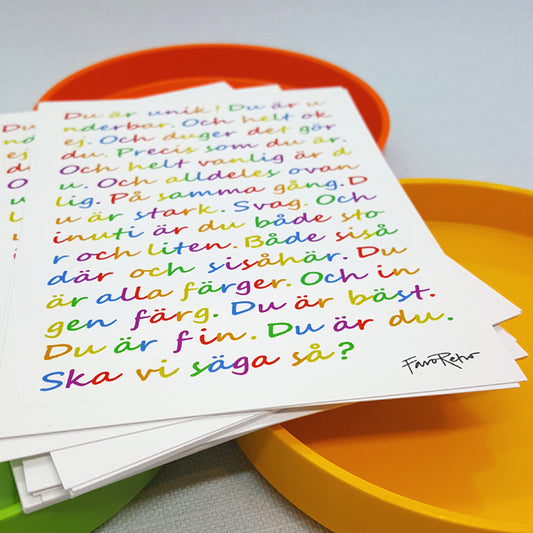 Du är unik! Du är u
nderbar. Och helt ok
ej. Och duger det gör
du. Precis som du är.
Och helt vanlig är d
u. Och alldeles ovan
lig. På samma gång. D
u är stark. Svag. Och
inuti är du både sto
r och liten. Både siså
där och sisåhär. Du
är alla färger. Och in
gen färg. Du är bäst.
Du är fin. Du är du.
Ska vi säga så?
FaroRetro